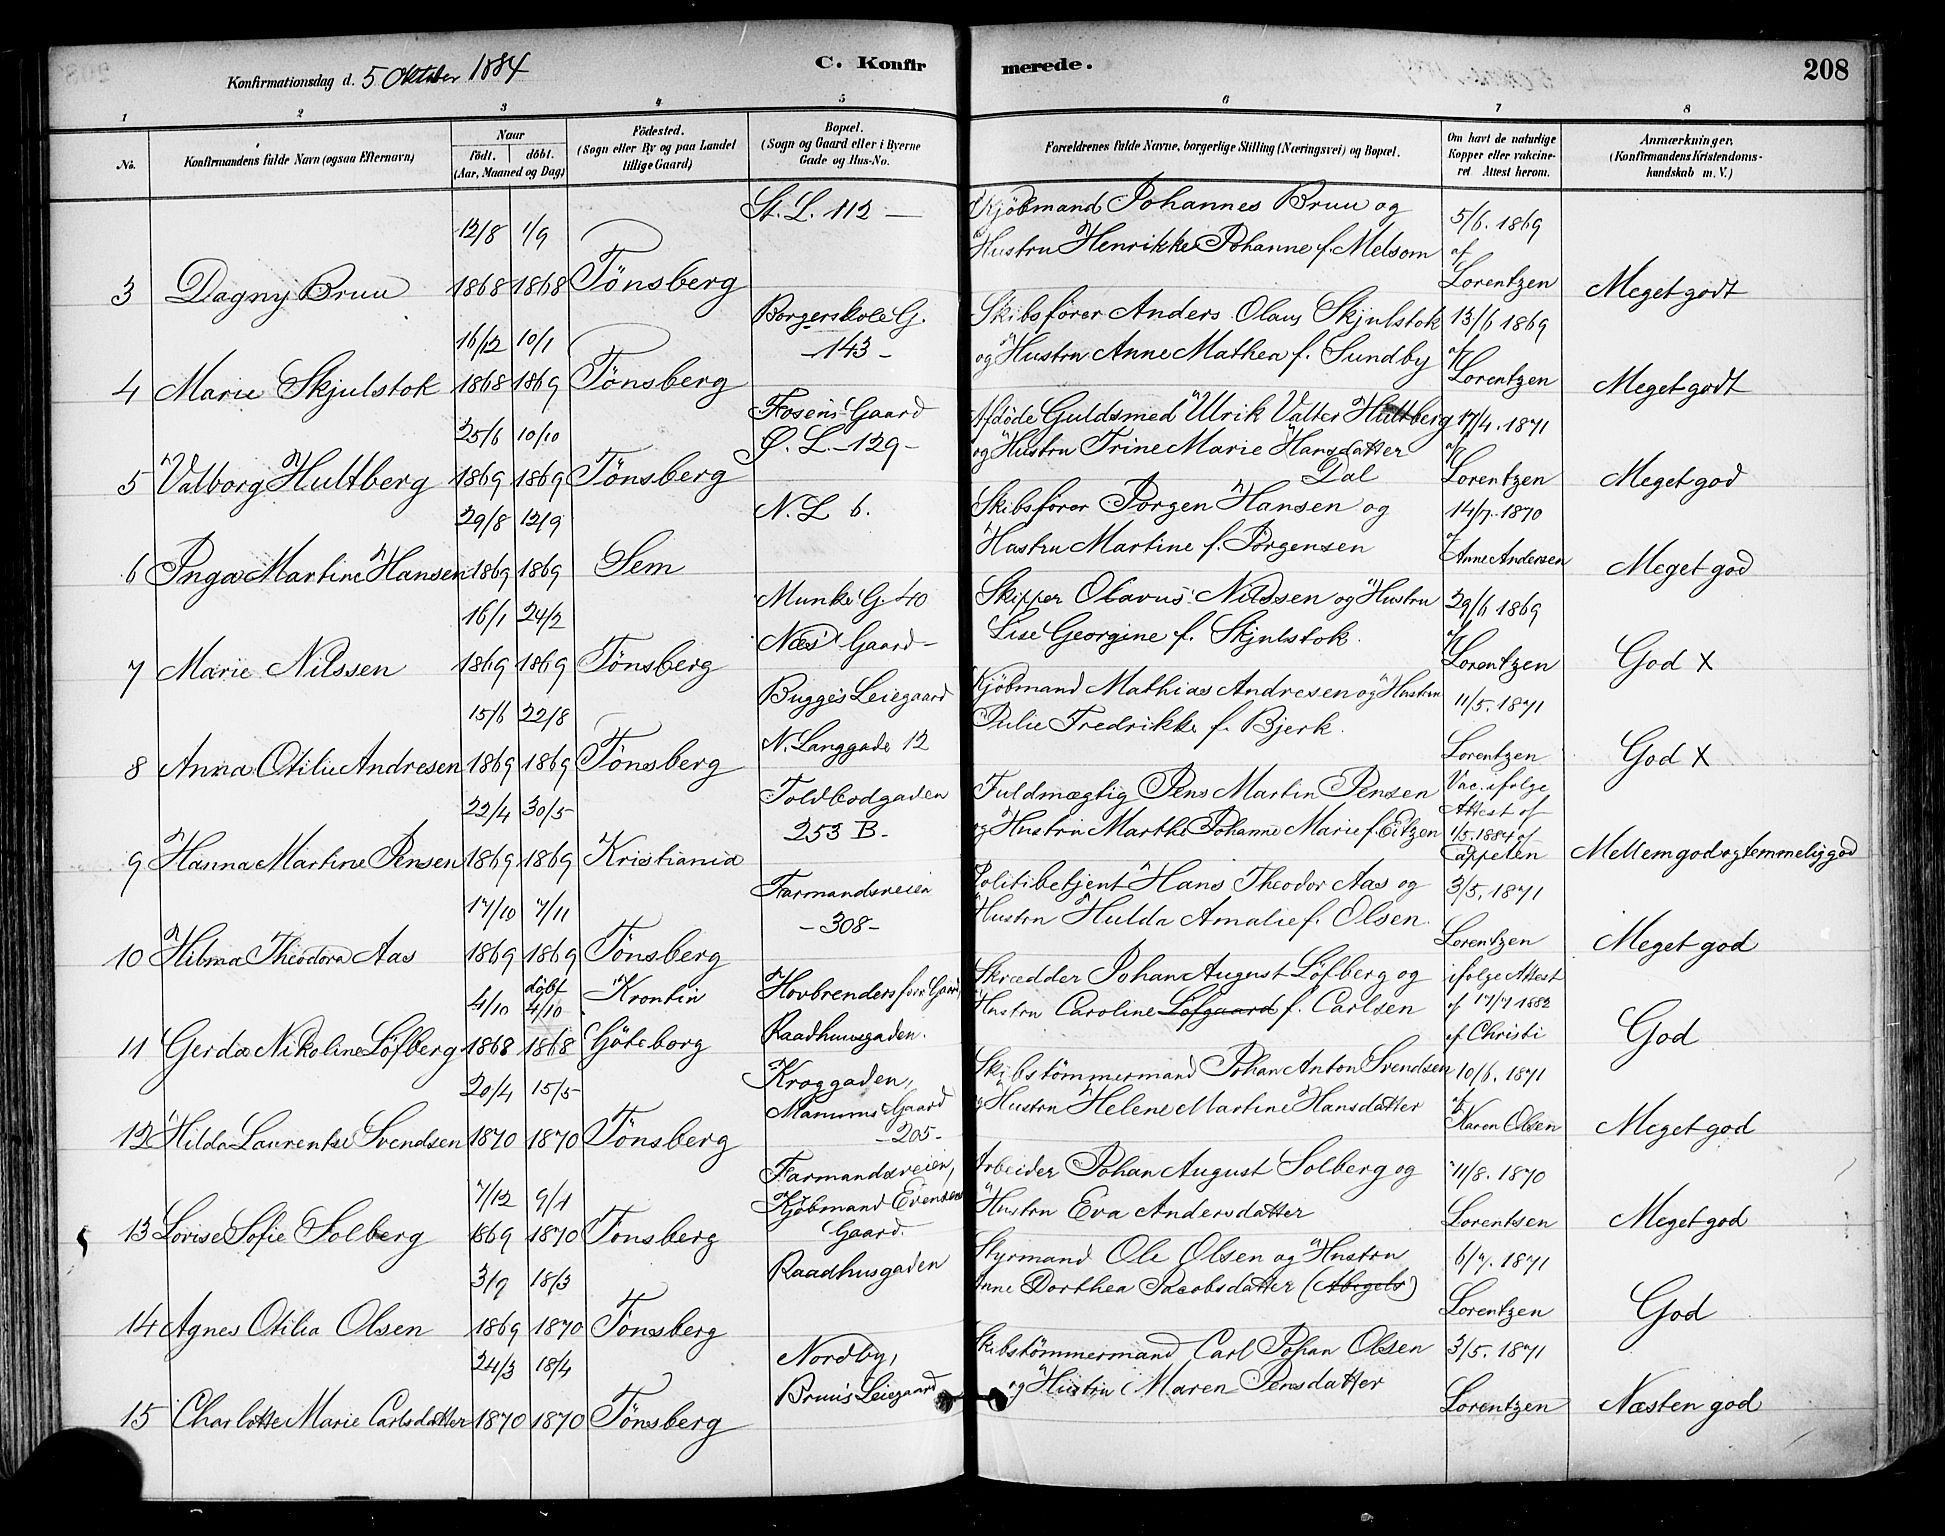 Konfirmationsdag d. 5 Oktober 1884
C. Konfirmerede.
208
1 2 3 4 5 6 7 8
No.
Konfirmandens fulde Navn (ogsaa Efternavn)
Naar
födt. döbt.
(Aar, Maaned og Dag)
Födested.
(Sogn eller By og paa Landet
tillige Gaard)
Bopæl.
(Sogn og Gaard eller i Byerne
Gade og Hus-No.
Forældrenes fulde Navne, borgerlige Stilling (Næringsvei) og Bopæl.
Om havt de naturlige
Kopper eller vakcineret
Attest herom.
Anmærkninger.
(Konfirmandens Kristendomskundskab
m. V.)
St. L. 112 —
Kjöbmand Johannes Bruu og
5/6. 1869
12/8 1/9
Hustru Henrikke Johanne f. Melsom
af
3 Dagny Bruu 1868 1868 Tönsberg
Lorentzen Meget godt
Borgerskole G.
Skibsförer Anders Olaus Skjulstok
13/6 1869
16/12 10/1
-143-
og Hustru Anne Mathea f. Sundby
af
4 Marie Skjulstok 1868 1869 Tönsberg
Lorentzen Meget godt
Fosens Gaard
Afdöde Guldsmed Ulrik Valter Hultberg
17/4. 1871
25/6 10/10
Ö. L. -129-
og Hustru Trine Marie Hansdatter
Dal
af
5 Valborg Hultberg 1869 1869 Tönsberg
Lorentzen Meget god
N. L 6.
Skibsförer Jörgen Hansen og
14/7. 1870
29/8 12/9
Hustru Martine f. Jörgensen
af
6 Inga Martine Hansen 1869 1869 Sem
Anne Andersen Meget god
Munke G. 40
Skipper Olavus Nilssen og Hustru
29/6 1869
16/1 24/2
Næs' Gaard-
Lise Georgine f. Skjulstok.
af
7 Marie Nilssen 1869 1869 Tönsberg
Lorentzen God X
Bugges Leiegaard
Kjöbmand Mathias Andresen og Hustru
11/5. 1871
15/6 22/8
N. Langgade 12
Julie Fredrikke f. Bjerk.
8 Anna Otilie Andresen 1869 1869 Tönsberg
Lorentzen God X
Toldbodgaden
Fuldmægtig Jens Martin Jensen
Vac. ifölge
Attest af
22/4 30/5
253 B-
og Hustru Marthe Johanne Marie f. Eitzen
1/5. 1884 af
9 Hanna Martine Jensen 1869 1869 Kristiania
Cappelen Mellem god og temmelig god
Farmandsveien
Politibetjent Hans Theodor Aas og
3/5. 1871
17/10 7/11
-308-
Hustru Hulda Amalie f. Olsen.
10 Hilma Theodora Aas 1869 1869 Tönsberg
Lorentzen Meget god
döbt
4/10 4/10 Krontin
Raadhusgaden.
Skrædder Johan August Löfberg og
ifölge Attest
Hustru Caroline Löfgaard f. Carlsen
af 17/7 1882
af Christi
11 Gerda Nikoline Löfberg 1868 1868 Göteborg
God
Kroggaden,
Skibstömmermand Johan Anton Svendsen
10/6. 1871
20/4 15/5
Manums Gaard
-205-
og Hustru Helene Martine Hansdatter
af
12 Hilda Laurentse Svendsen 1870 1870 Tönsberg
Karen Olsen Meget god
Farmandsveien,
Arbeider Johan August Solberg og
11/8. 1870
7/12 9/1
Kjöbmand Evensens
Gaard.
Hustru Eva Andersdatter
13 Lovise Sofie Solberg 1869 1870 Tönsberg
Lorentsen Meget god
Raadhusgaden
Styrmand Ole Olsen og Hustru
6/7. 1871
3/9 18/3
Anne Dorthea Jacobsdatter (Abigels)
14 Agnes Otilia Olsen 1869 1870 Tönsberg
Lorentzen God
Nordby,
Skibstömmermand Carl Johan Olsen
3/5. 1871
24/3 18/4
Bruus Leiegaard
og Hustru Maren Jensdatter
15 Charlotte Marie Carlsdatter 1870 1870 Tönsberg
Lorentzen Næsten god